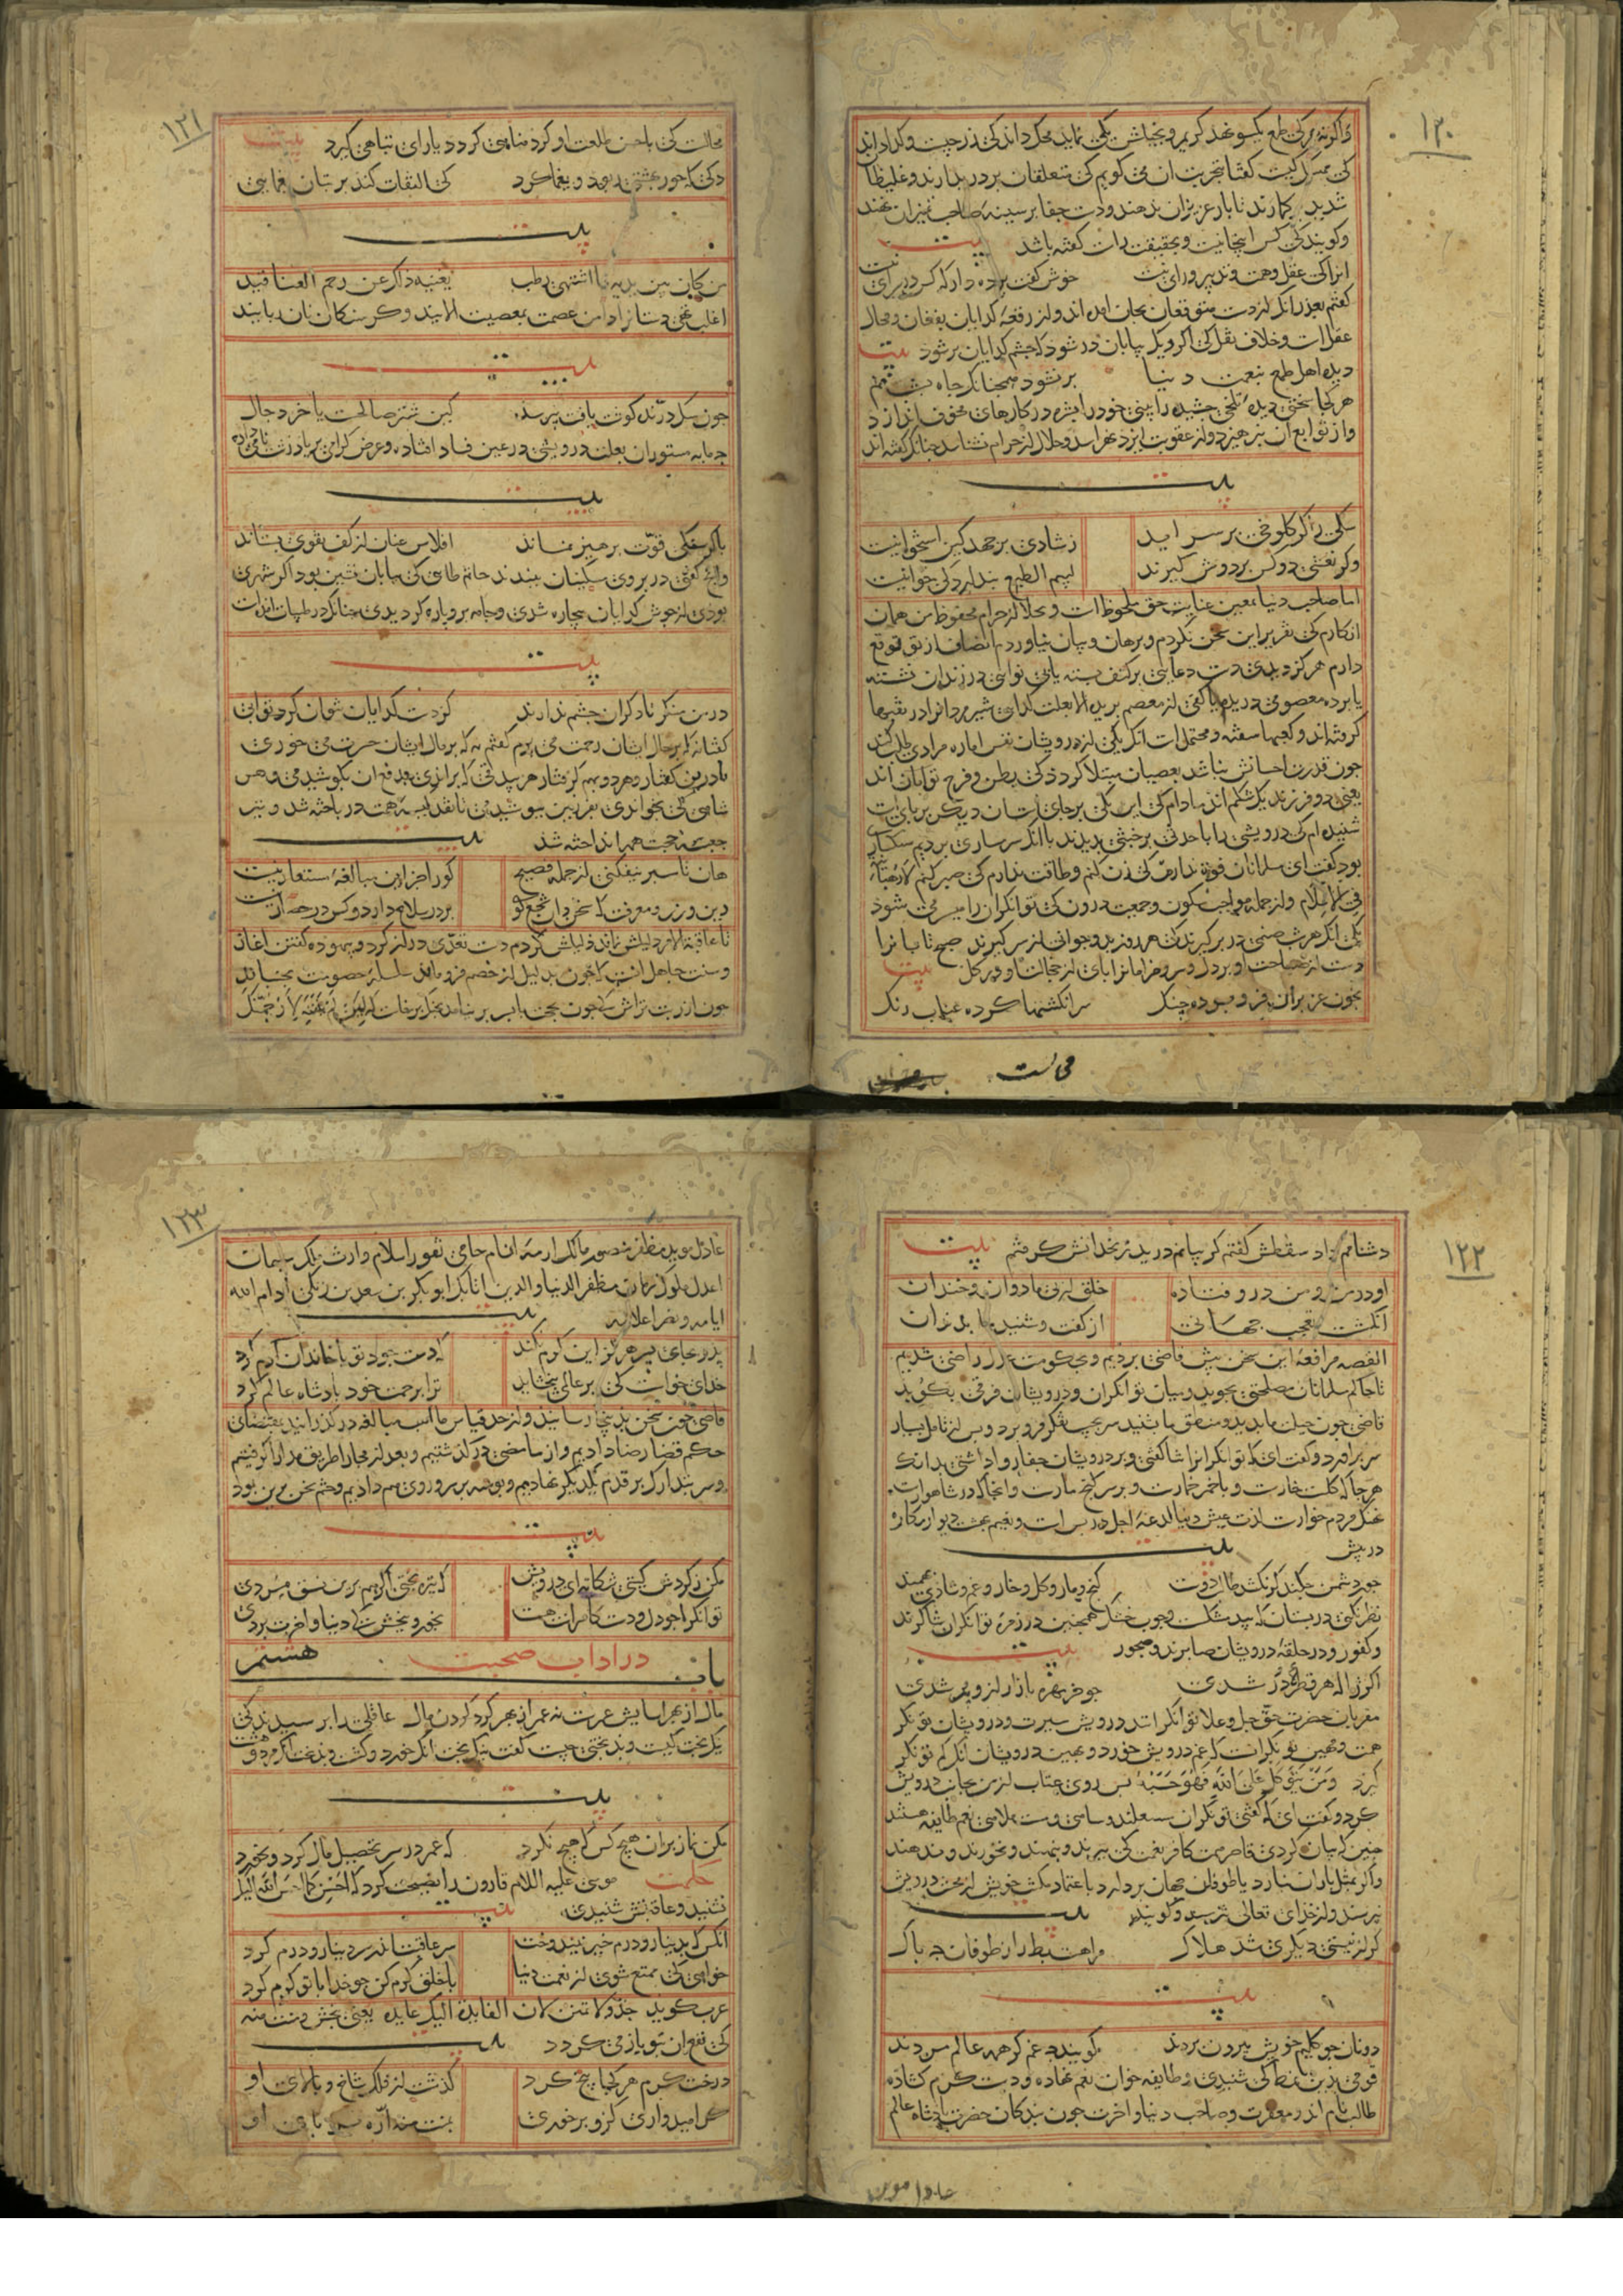 ۱۲۰
واگرنه هرکی طمع یکسو نهد کریم و بخیلش یکی نماید محک داند کی زر چیست و کدا داند
کی ممسک کیست کفتا بتجربت آن می کویم کی متعلقان بر در بدارند و غلیظان
شدید بکمارند تا بار عزیزان ندهند و دست جفا بر سینه صاحب تمیزان نهند
و کویند کی کس اینجا نیست و بحقیقت راست کفته باشد بیت
انرا کی عقل و همت و تدبیر و رای نیست خوش کفت پرده دار که کس در سرای نیست
کفتم بعذر آنک از دست متوقعان بجان امده اند و از رقعه کدایان بفغان و محال
عقلست و خلاف نقل کی اکر ریک بیابان در شود که چشم کدایان پر شود بیت
دیده اهل طمع بنعمت دنیا پر نشود همچنانک چاه بشبنم
هر کجا سختی دیده تلخی چشیده را بینی خود را بشره در کارهای مخوف اندازد
و از توابع آن نپرهیزد و از عقوبت ایزد نهراسد و حلال از حرام نشناسد چنانک کفته اند
بیت
سکی را کر کلوخی بر سر اید ز شادی برجهد کین استخوانیست
و کر نعشی دو کس بر دوش کیرند لییم الطبع پندارد کی خوانیست
اما صاحب دنیا بعین عنایت حق ملحوظست و بحلال از حرام محفوظ من همان
انکارم کی تقریر این سخن نکردم و برهان و بیان نیاوردم انصاف از تو توقع
دارم هرکز دیدی دست دعایی بر کتف بسته یا بی نوایی در زندان نشسته
یا پرده معصومی دریده یا کفی از معصم بریده الا بعلت کدای شیر مردانرا در نقبها
کرفته اند و کعبها سفته و محتملست انک یکی از درویشان نفس اماره مرادی طلب کند
چون قدرت احسانش نباشد بعصیان مبتلا کردد کی بطن و فرج توامان اند
یعنی دو فرزند یک شکم اند مادام کی این یکی برجای است آن دیکر بر پای است
شنیدم کی درویشی را با حدثی بر خبثی بدیدند با انک شرمساری بردیم سنکسار
بود کفت ای مسلمانان قوت ندارم کی زن کنم و طاقت ندارم کی صبر کنم لا رهبانیة
فی الاسلام و از جمله مواجب سکون و جمعیت درون کی توانکران را میسر می شود
یکی انک هر شب صنمی در بر کیرند کی هر روز بدو جوانی از سر کیرند صبح تابانرا
دست از صباحت او بر دل و سرو خرامانرا پای از خجالت او در کل بیت
بخون عزیزان فرو برده چنک سر انکشتها کرده عناب رنک
محالست
۱۲۱
محالست کی با حسن طلعت او کرد مناهی کردد یا رای تباهی کیرد بیت
دلی که حور بهشتی ربود و یغما کرد کی التفات کند بر بتان یغمایی
بیت
من کان بین یدیه ما اشتهی رطب یغنیه ذلک عن رجم العناقید
اغلب تهی دستانرا دامن عصمت بمعصیت الاید و کرسنکان نان ربایند
بیت
چون سک درنده کوشت یافت نپرسد کین شتر صالحست یا خر دجال
چه مایه مستوران بعلت درویشی در عین فساد افتاده و عرض کرامی بر باد زشت نامی داده
بیت
با کرسنکی قوت پرهیز نماند افلاس عنان از کف تقوی بستاند
و انچه کفتی در بروی مسکینان ببندند حاتم طایی کی بیابان نشین بود اکر شهری
بودی از جوش کدایان بیچاره شدی و جامه برو پاره کردیدی چنانک در طیبات آمده است
بیت
در من منکر تا دکران چشم ندارند کز دست کدایان نتوان کرد ثوابی
کفتا نه که بر حال ایشان رحمت می برم کفتم نه که بر مال ایشان حسرت می خوری
ما درین کفتار و هر دو بهم کرفتار هر بیدقی که براندی بدفع ان بکوشیدمی و هر
شاهی کی بخواندی بفرزین بپوشیدمی تا نقد کیسه همت در باخته شد و تیر
جعبه حجت همه انداخته شد بیت
هان تا سپر نیفکنی از حمله فصیح کورا جز این مبالغه مستعار نیست
دین ورز و معرفت که سخندان سجع کو بر در سلاح دارد و کس در حصار نیست
تا عاقبة الامر دلیلش نماند ذلیلش کردم دست تعدی دراز کرد و بیهوده کفتن اغاز
و سنت جاهل انست که چون بدلیل از خصم فرو ماند سلسله خصومت بجنباند
چون ازر بت تراش که چون بحجت با پسر بر نیامد بجنک برخاست که لئن لم تنته لارجمنک
۱۲۲
دشنامم داد سقطش کفتم کریبانم درید زنخدانش کرفتم بیت
او در من و من درو فتاده خلق از پی ما دوان و خندان
انکشت تعجب جهانی از کفت و شنید ما بدندان
القصه مرافعه این سخن پیش قاضی بردیم و بحکومت عدل راضی شدیم
تا حاکم مسلمانان مصلحتی بجوید و میان توانکران و درویشان فرقی بکوید
قاضی چون حیلت ما بدید و منطق ما شنید سر بجیب تفکر فرو برد و پس از تامل بسیار
سر براورد و کفت ای که توانکرانرا ثنا کفتی و بر درویشان جفا روا داشتی بدانک
هر جا که کلست خارست و با خمر خمارست و بر سر کنج مارست و انجا که در شاهوارست
نهنک مردم خوارست لذت عیش دنیا لدغه اجل در پس است و نعیم بهشت دیوار مکاره
در پیش بیت
جور دشمن چکند کر نکشد طالب دوست کنج و مار و کل و خار و غم و شادی بهمند
نظر نکنی در بستان که بید مشکست و چوب خشک همچنین در زمره توانکران شاکرند
و کفور و در حلقه درویشان صابرند و ضجور بیت
اکر ژاله هر قطره در شدی چو خرمهره بازار ازو پر شدی
مقربان حضرت حق جل و علا توانکرانند درویش سیرت و درویشان توانکر
همت و مهین توانکران که غم درویش خورد و بهین درویشان آنک کم توانکر
کیرد و من یتوکل علی الله فهو حسبه پس روی عتاب از من بجانب درویش
کرد و کفت ای که کفتی توانکران مشتغلند و ساهی و مست ملاهی نعم طایفه هستند
چنین که بیان کردی قاصر همت کافر نعمت کی ببرند و بنهند و نخورند و ندهند
و اکر بمثل باران نبارد یا طوفان جهان بردارد باعتماد مکنت خویش از محنت درویش
نپرسند و از خدای تعالی نترسند و کویند بیت
کر از نیستی دیکری شد هلاک مرا هست بط را ز طوفان چه باک
بیت
دونان چو کلیم خویش بیرون بردند کویند چه غم کر همه عالم مردند
قومی بدین نمط کی شنیدی و طایفه خوان نعم نهاده و دست کرم کشاده
طالب نام اند و مغفرت و صاحب دنیا و اخرت چون بندکان حضرت پادشاه عالم
عادل موید
۱۲۳
عادل موید مظفر منصور مالک ازمه انام حامی ثغور اسلام وارث ملک سلیمان
اعدل ملوک زمان مظفر الدنیا والدین اتابک ابوبکر بن سعد بن زنکی ادام الله
ایامه و نصر اعلامه بیت
پدر بجای پسر هرکز این کرم نکند که دست جود تو با خاندان آدم کرد
خدای خواست کی بر عالمی ببخشاید ترا برحمت خود پادشاه عالم کرد
قاضی چون سخن بدینجا رسانید و از حد قیاس ما اسب مبالغه در کذرانید بمقتضای
حکم قضا رضا دادیم و از ما مضی در کذشتیم و بعد از مجارا طریق مدارا کرفتیم
و سر بتدارک بر قدم یکدیکر نهادیم و بوسه بر سر و روی هم دادیم و ختم سخن برین بود
بیت
مکن ز کردش کیتی شکایت ای درویش که تیره بختی اکر هم برین نسق مردی
توانکرا چو دل و دست کامرانت هست بخور و ببخش که دنیا و اخرت بردی
باب هشتم در اداب صحبت
مال از بهر اسایش عمرست نه عمر از بهر کرد کردن مال عاقلی را پرسیدند کی
نیک بخت کیست و بدبختی چیست کفت نیکبخت انک خورد و کشت و بدبخت انک مرد و هشت
بیت
مکن نماز بران هیچ کس که هیچ نکرد که عمر در سر تحصیل مال کرد و نخورد
حکمت موسی علیه السلام قارون را نصیحت کرد که احسن کما احسن الله الیک
نشنید و عاقبتش شنیدی بیت
انکس که بدینار و درم خیر نیندوخت سر عاقبت اندر سر دینار و درم کرد
خواهی کی ممتع شوی از نعمت دنیا با خلق کرم کن چو خدا با تو کرم کرد
عرب کوید جد ولا تمنن لان الفایدة الیک عایده یعنی ببخش و منت منه
کی نفع ان بتو باز می کردد بیت
درخت کرم هر کجا بیخ کرد کذشت از فلک شاخ و بالای او
کر امیدواری کزو بر خوری بمنت منه اره بر پای او